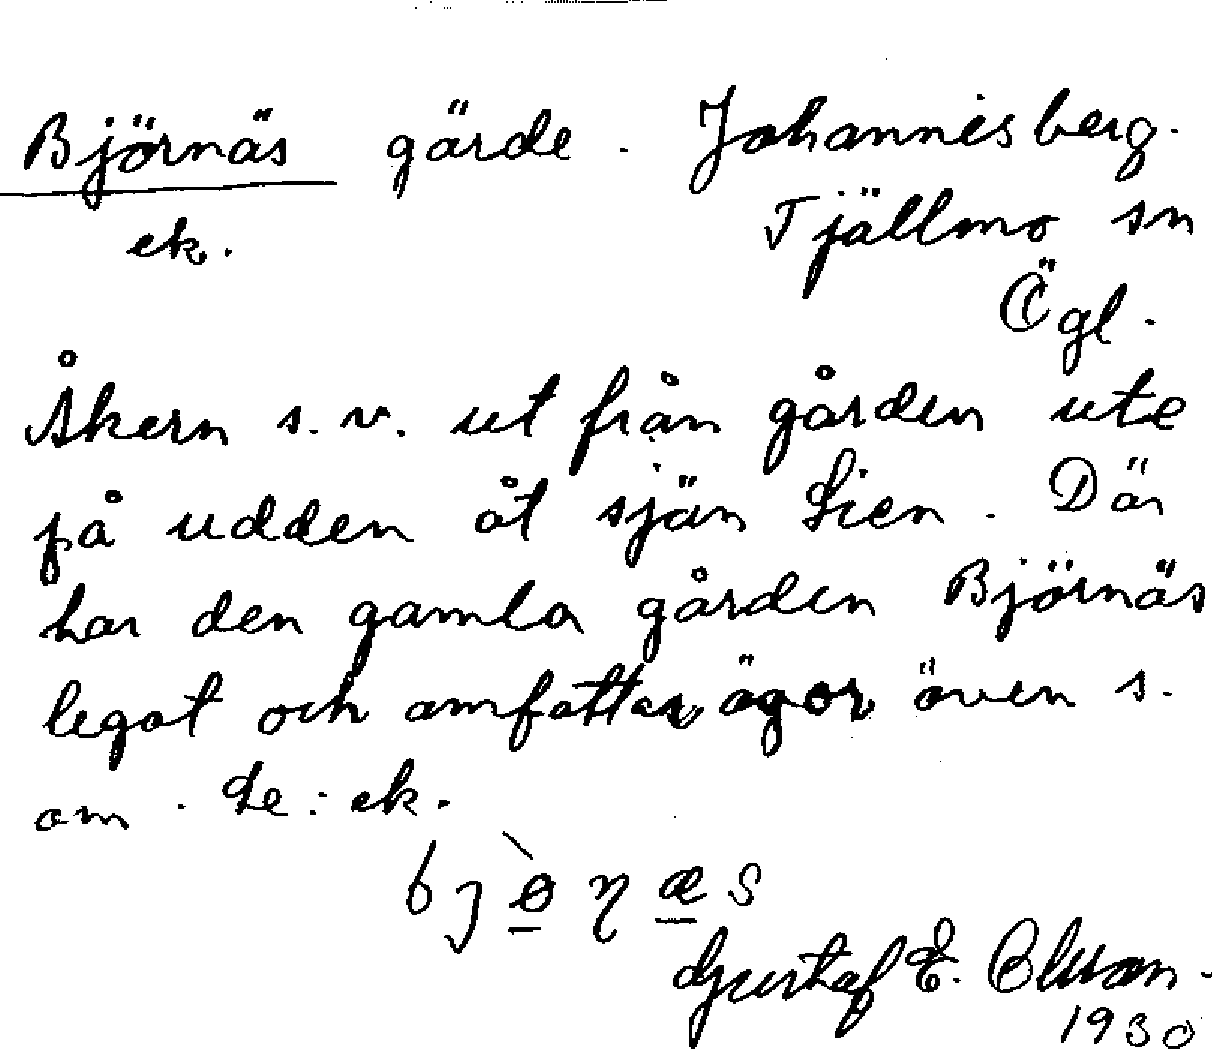 Björnäs gärde. Johannisberg.
ek. Tjällmo sn
Ögl.
Åkern s.v. ut från gården ute
på udden åt sjön Lien. Där
har den gamla gården Björnäs
legat och omfattar ägor även s.
om. Le: ek.
bjònæs
Gustaf E. Olsson.
1930